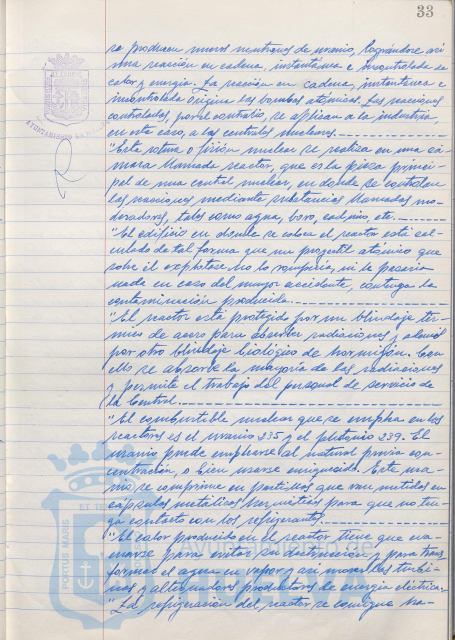 33
se producen nuevos neutrones de uranio, lográndose así
una reacción en cadena, instantánea e incontrolada de
calor y energía. La reacción en cadena, instantánea e
incontrolada origina las bombas atómicas. Las reacciones
controladas, por el contrario, se aplican a la industria,
en este caso, a las centrales nucleares.
"Esta rotura o fisión nuclear se realiza en una cá-
mara llamada reactor, que es la pieza princi-
pal de una central nuclear, en donde se controlan
las reacciones mediante substancias llamadas mo-
deradores, tales como agua, boro, cadmio, etc.
"El edificio en donde se coloca el reactor está cal-
culado de tal forma que un proyectil atómico que
sobre él explotase no lo rompería, ni le pasaría
nada en caso del mayor accidente, contenga la
contaminación producida.
"El reactor está protegido por un blindaje tér-
mico de acero para absorber radiaciones, y además
por otro blindaje biológico de hormigón. Con
ello se absorbe la mayoría de las radiaciones
y permite el trabajo del personal de servicio de
la Central.
"El combustible nuclear que se emplea en los
reactores es el uranio 235 y el plutonio 239. El
uranio puede emplearse al natural previa con-
centración, o bien usarse enriquecido. Este ura-
nio se comprime en partículas que van metidas en
cápsulas metálicas herméticas para que no ten-
ga contacto con los refrigerantes.
"El calor produc​ido en el reactor tiene que eva-
cuarse para evitar su destrucción, y para trans-
formar el agua en vapor y así mover las turbi-
nas y alternadores productores de energía eléctrica.
"La refrigeración del reactor se consigue me-
PORTUS MARIS
ET TE
AYUNTAMIENTO